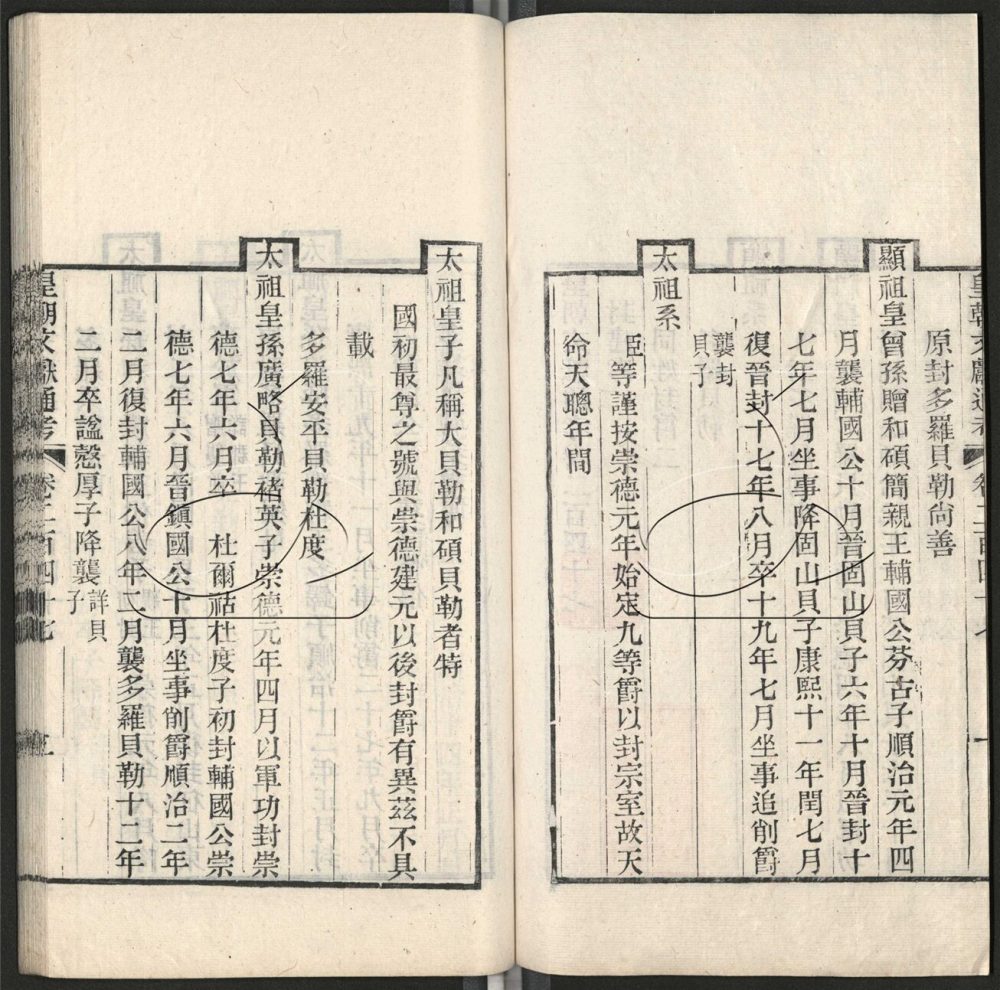 原封多羅貝勒尚善
顯祖皇曾孫贈和碩簡親王輔國公芬古子順治元年四
月襲輔國公十月晉固山貝子六年十月晉封十
七年七月坐事降固山貝子康熙十一年閏七月
復晉封十七年八月卒十九年七月坐事追削爵
襲封
貝子
太祖系
臣等謹按崇德元年始定九等爵以封宗室故天
命天聰年間
太祖皇子凡稱大貝勒和碩貝勒者特
國初最尊之號與崇德建元以後封爵有異茲不具
載
多羅安平貝勒杜度
太祖皇孫廣略貝勒褚英子崇德元年四月以軍功封崇
德七年六月卒 杜爾祜杜度子初封輔國公崇
德七年六月晉鎮國公十月坐事削爵順治二年
二月復封輔國公八年二月襲多羅貝勒十二年
二月卒諡慤厚子降襲
詳貝
子
皇朝文獻通考 卷二百四十七